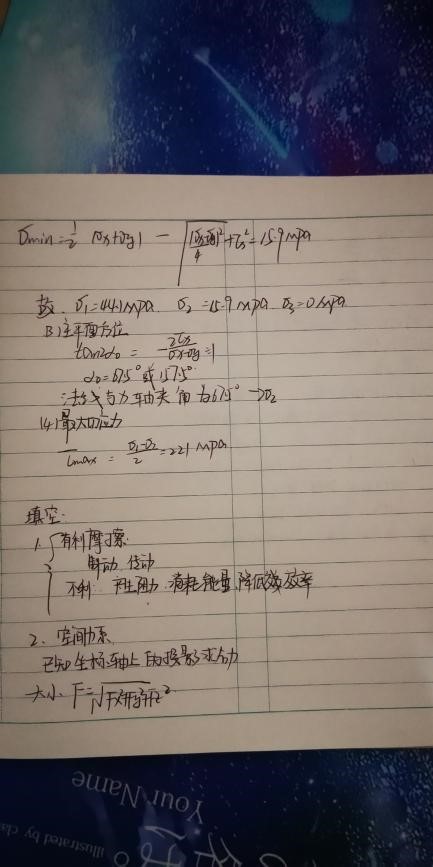 σmin = 1/2 |σx+σy| − √((σx-σy)²/4 + τx²) = 15.9 mpa
故. σ1=44.1mpa. σ2=15.9mpa σ3=0mpa
(3)主平面方位
tan2α0 = -2τx/(σx-σy) = 1
α0=67.5°或157.5°
∴法线与力轴夹角为67.5° →σ2
(4)最大切应力
τmax = (σ1-σ3)/2 = 22.1 mpa
填空:
1. 有利摩擦:
制动 传动
不利: 产生阻力 消耗能量 降低效率
2. 空间力系
已知坐标轴上的投影求合力
大小 F=√Fx²+Fy²+Fz²
Your Name
illustrated by